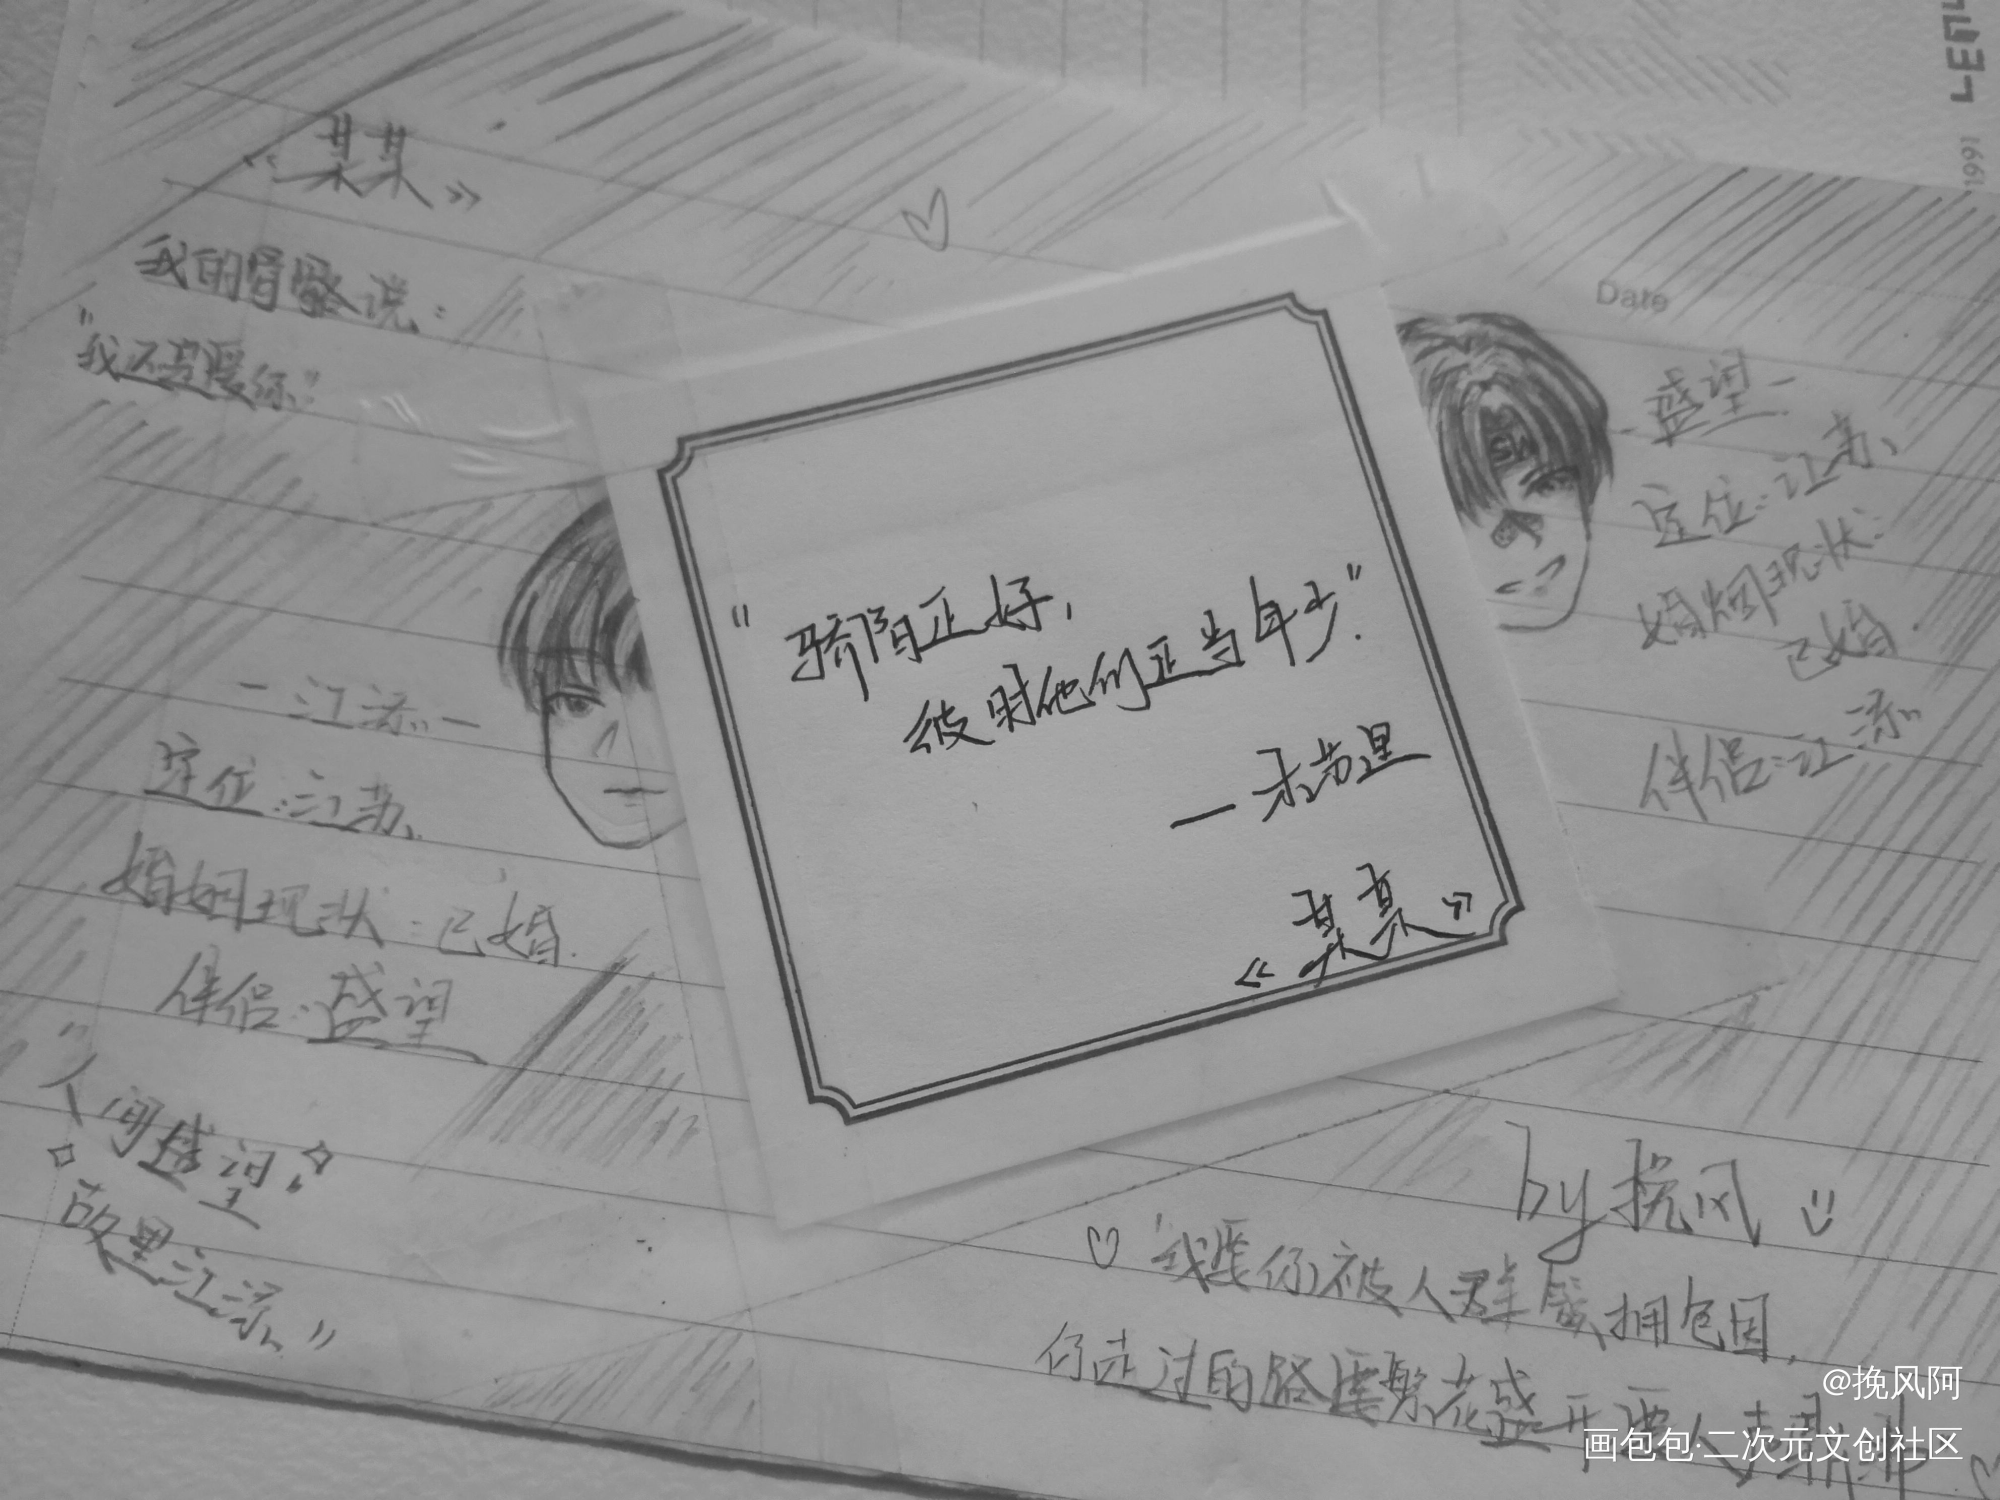 《某某》
我的骨骼说：
"我还是爱你"
LEMO
1991
Date
盛望—
定位：江苏、
婚姻现状：
已婚.
伴侣：江添
"骄阳正好，
彼时他们正当年少."
—木苏里
《某某》
—江添—
定位：江苏、
婚姻现状：已婚.
伴侣：盛望
"人间盛望，
故里江添"
by 挽风
"我要你被人群簇拥包围，
你走过的路要繁花盛开要人声鼎沸
@挽风阿
画包包·二次元文创社区
SW